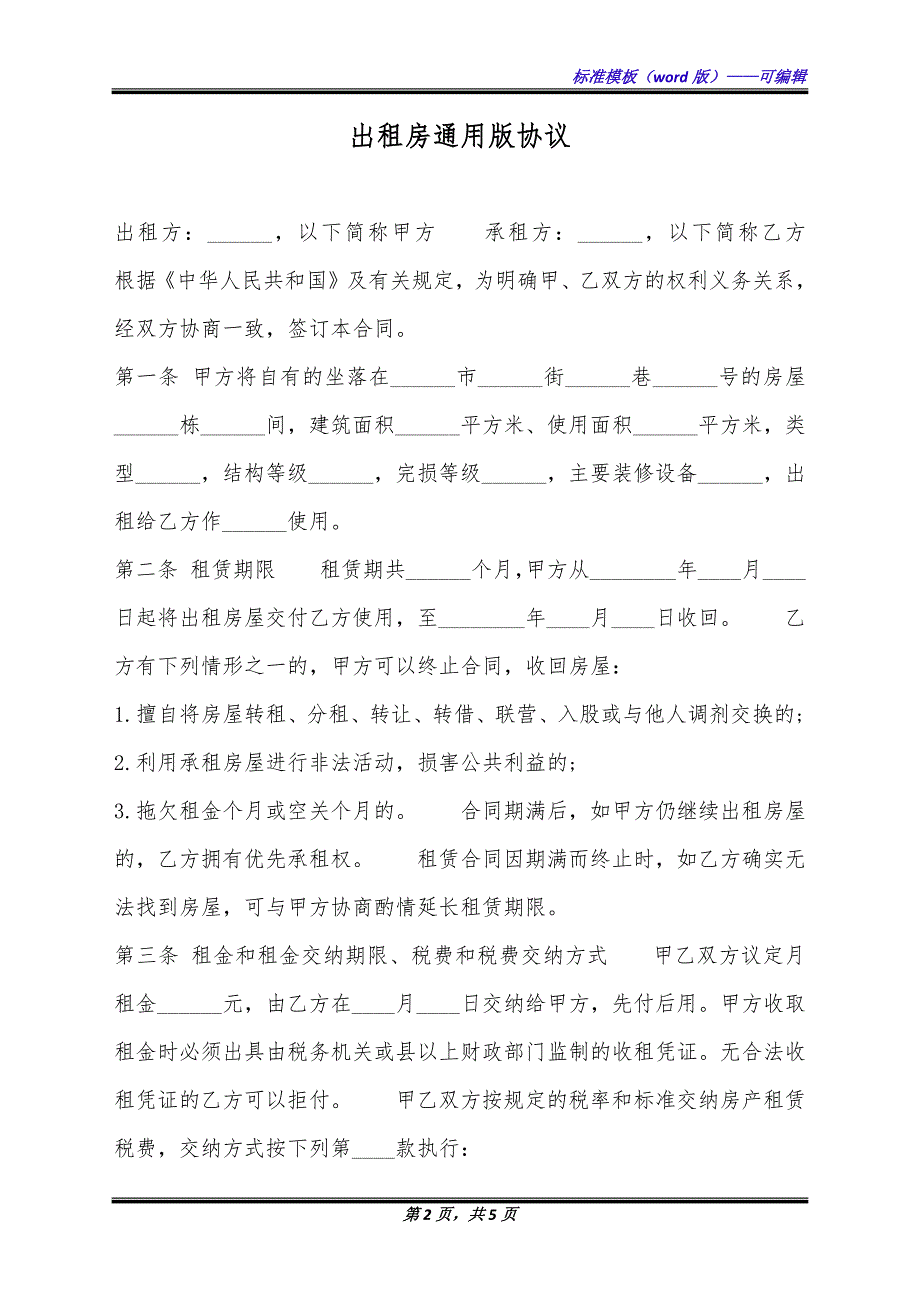 标准模板（word 版）——可编辑
出租房通用版协议
出租方：______，以下简称甲方　　承租方：______，以下简称乙方
根据《中华人民共和国》及有关规定，为明确甲、乙双方的权利义务关系，
经双方协商一致，签订本合同。
第一条 甲方将自有的坐落在______市______街______巷______号的房屋
______栋______间，建筑面积______平方米、使用面积______平方米，类
型______，结构等级______，完损等级______，主要装修设备______，出
租给乙方作______使用。
第二条 租赁期限　　租赁期共______个月，甲方从________年____月____
日起将出租房屋交付乙方使用，至________年____月____日收回。　　乙
方有下列情形之一的，甲方可以终止合同，收回房屋：
1.擅自将房屋转租、分租、转让、转借、联营、入股或与他人调剂交换的;
2.利用承租房屋进行非法活动，损害公共利益的;
3.拖欠租金个月或空关个月的。　　合同期满后，如甲方仍继续出租房屋
的，乙方拥有优先承租权。　　租赁合同因期满而终止时，如乙方确实无
法找到房屋，可与甲方协商酌情延长租赁期限。
第三条 租金和租金交纳期限、税费和税费交纳方式　　甲乙双方议定月
租金______元，由乙方在____月____日交纳给甲方，先付后用。甲方收取
租金时必须出具由税务机关或县以上财政部门监制的收租凭证。无合法收
租凭证的乙方可以拒付。　　甲乙双方按规定的税率和标准交纳房产租赁
税费，交纳方式按下列第____款执行：
第 2 页，共 5 页